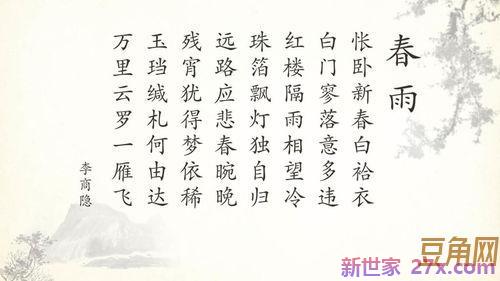 春雨
怅卧新春白袷衣
白门寥落意多违
红楼隔雨相望冷
珠箔飘灯独自归
远路应悲春晼晚
残宵犹得梦依稀
玉珰缄札何由达
万里云罗一雁飞
李商隐
豆角网
新世家 27x.com